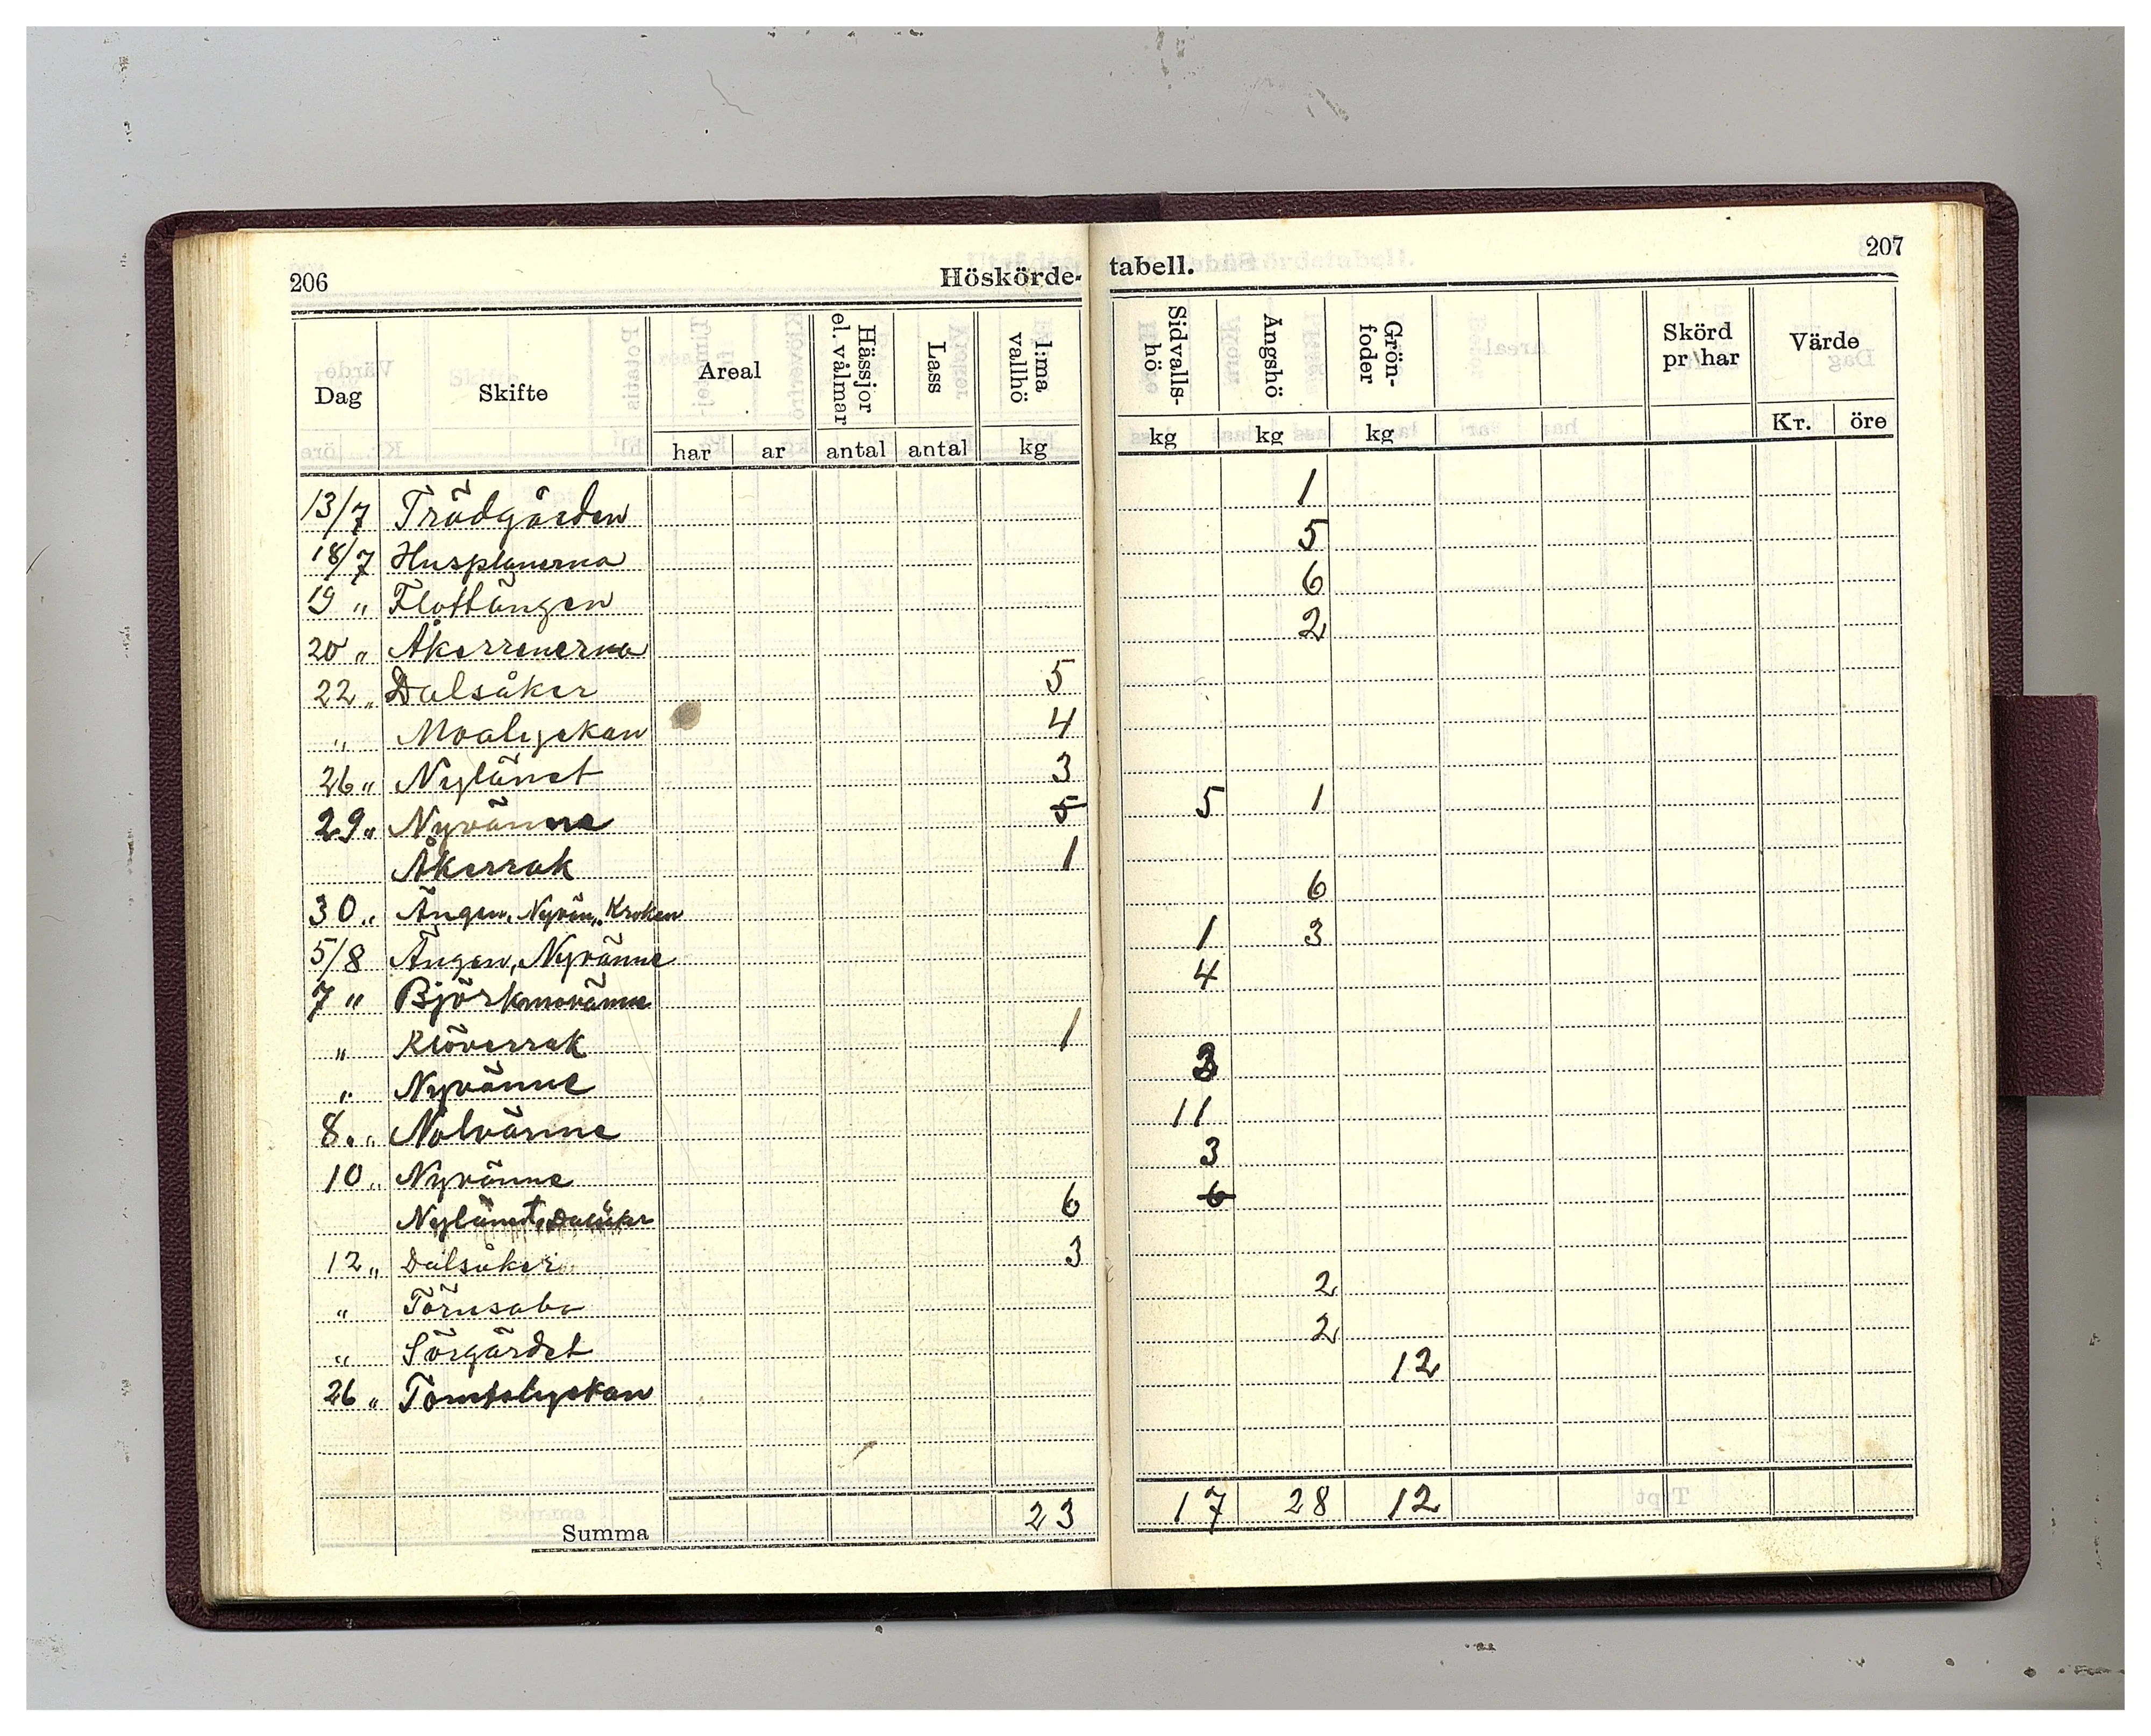 206 Höskörde- tabell. 207
Dag Skifte Areal Hässjor el. vålmar Lass I:ma vallhö Sidvalls-hö Ängshö Grön-foder Skörd pr har Värde
har ar antal antal kg kg kg kg Kr. öre
13/7 Trädgården 1
18/7 Husplanerna 5
19 " Flottängen 6
20 " Åkerrenerna 2
22 " Dalsåker 5
" Moalyckan 4
26 " Nylänet 3
29 " Nyvänne 5 5 1
Åkerrak 1
30 " Ängen, Nyvän,, Kroken 6
5/8 Ängen, Nyvänne 1 3
7 " Björkmovänne 4
" Klöverrak 1
" Nyvänne 3
8 " Nolvänne 11
10 " Nyvänne 3
Nylänet, Dalsåker 6 6
12 " Dalsåker 3
" Törnsaba 2
" Sörgärdet 2
26 " Tomtalyckan 12
Summa 23 17 28 12